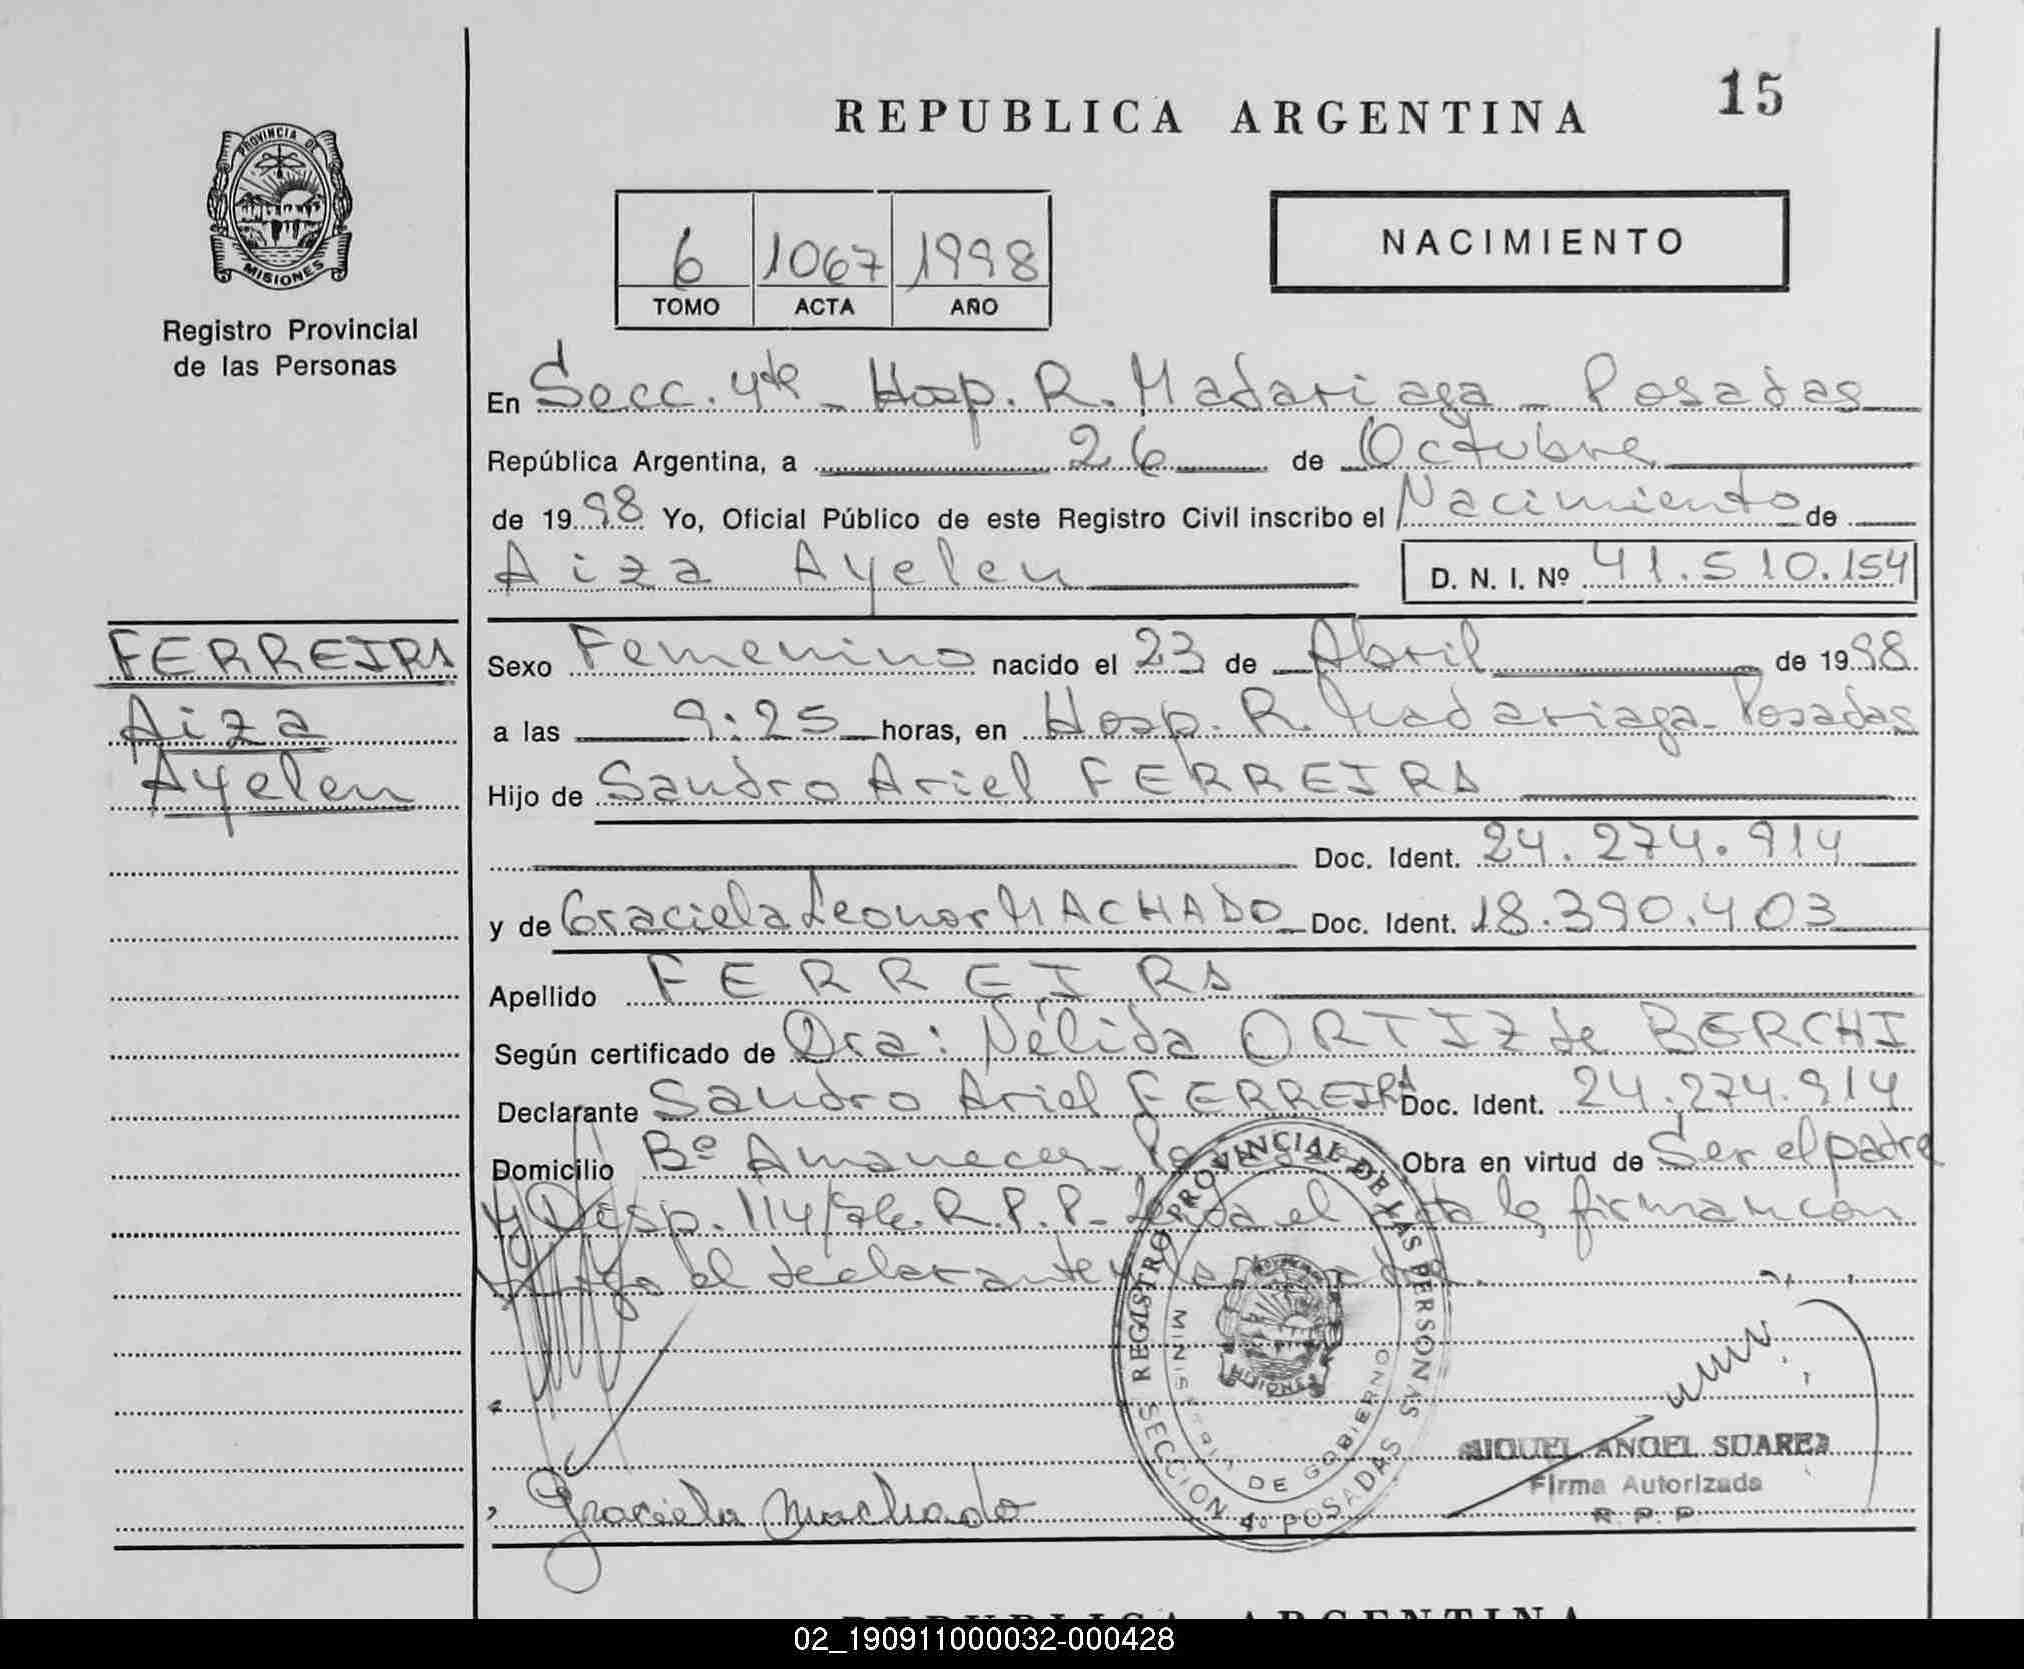 15
REPUBLICA ARGENTINA
PROVINCIA DE
MISIONES
Registro Provincial
de las Personas
6 1067 1998
TOMO ACTA AÑO
NACIMIENTO
En Secc. 4ta - Hosp. R. Madariaga - Posadas
República Argentina, a 26 de Octubre
de 1998 Yo, Oficial Público de este Registro Civil inscribo el Nacimiento de
Aiza Ayelen D. N. I. Nº 41.510.154
FERREIRA
Aiza
Ayelen
Sexo Femenino nacido el 23 de Abril de 1998
a las 9:25 horas, en Hosp. R. Madariaga - Posadas
Hijo de Sandro Ariel FERREIRA
Doc. Ident. 24.274.914
y de Graciela Leonor MACHADO Doc. Ident. 18.390.403
Apellido FERREIRA
Según certificado de Dra: Nélida ORTIZ de BERCHI
Declarante Sandro Ariel FERREIRA Doc. Ident. 24.274.914
Domicilio Bº Amanecer - Obra en virtud de Ser el padre
y Disp. 114/ R.P.P - el firman con
el declarante
REGISTRO PROVINCIAL DE LAS PERSONAS
MINISTERIO DE GOBIERNO
MISIONES
SECCION 4º POSADAS
MIGUEL ANGEL SUAREZ
Firma Autorizada
R. P. P
Graciela Machado
REPUBLICA ARGENTINA
02_190911000032-000428